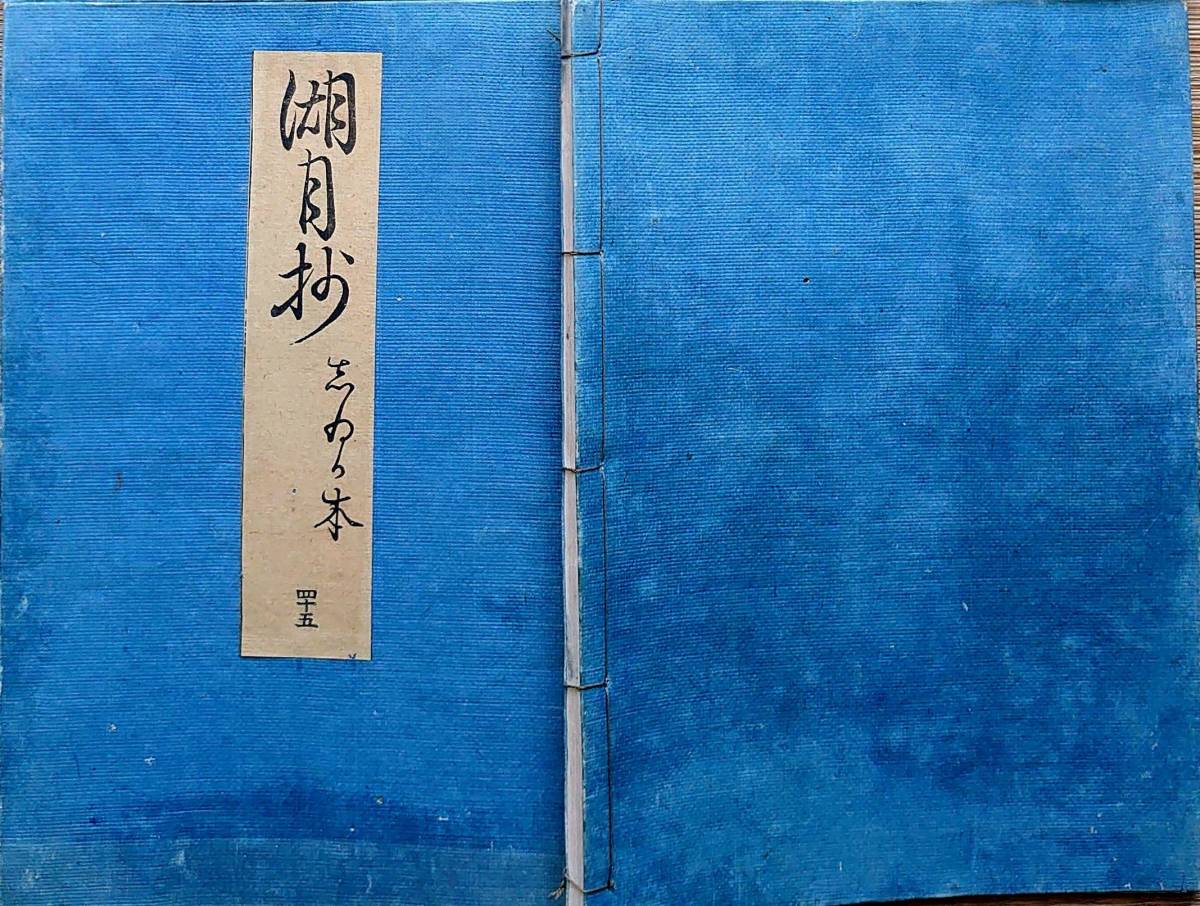 湖月抄
志ゐか本
四十五